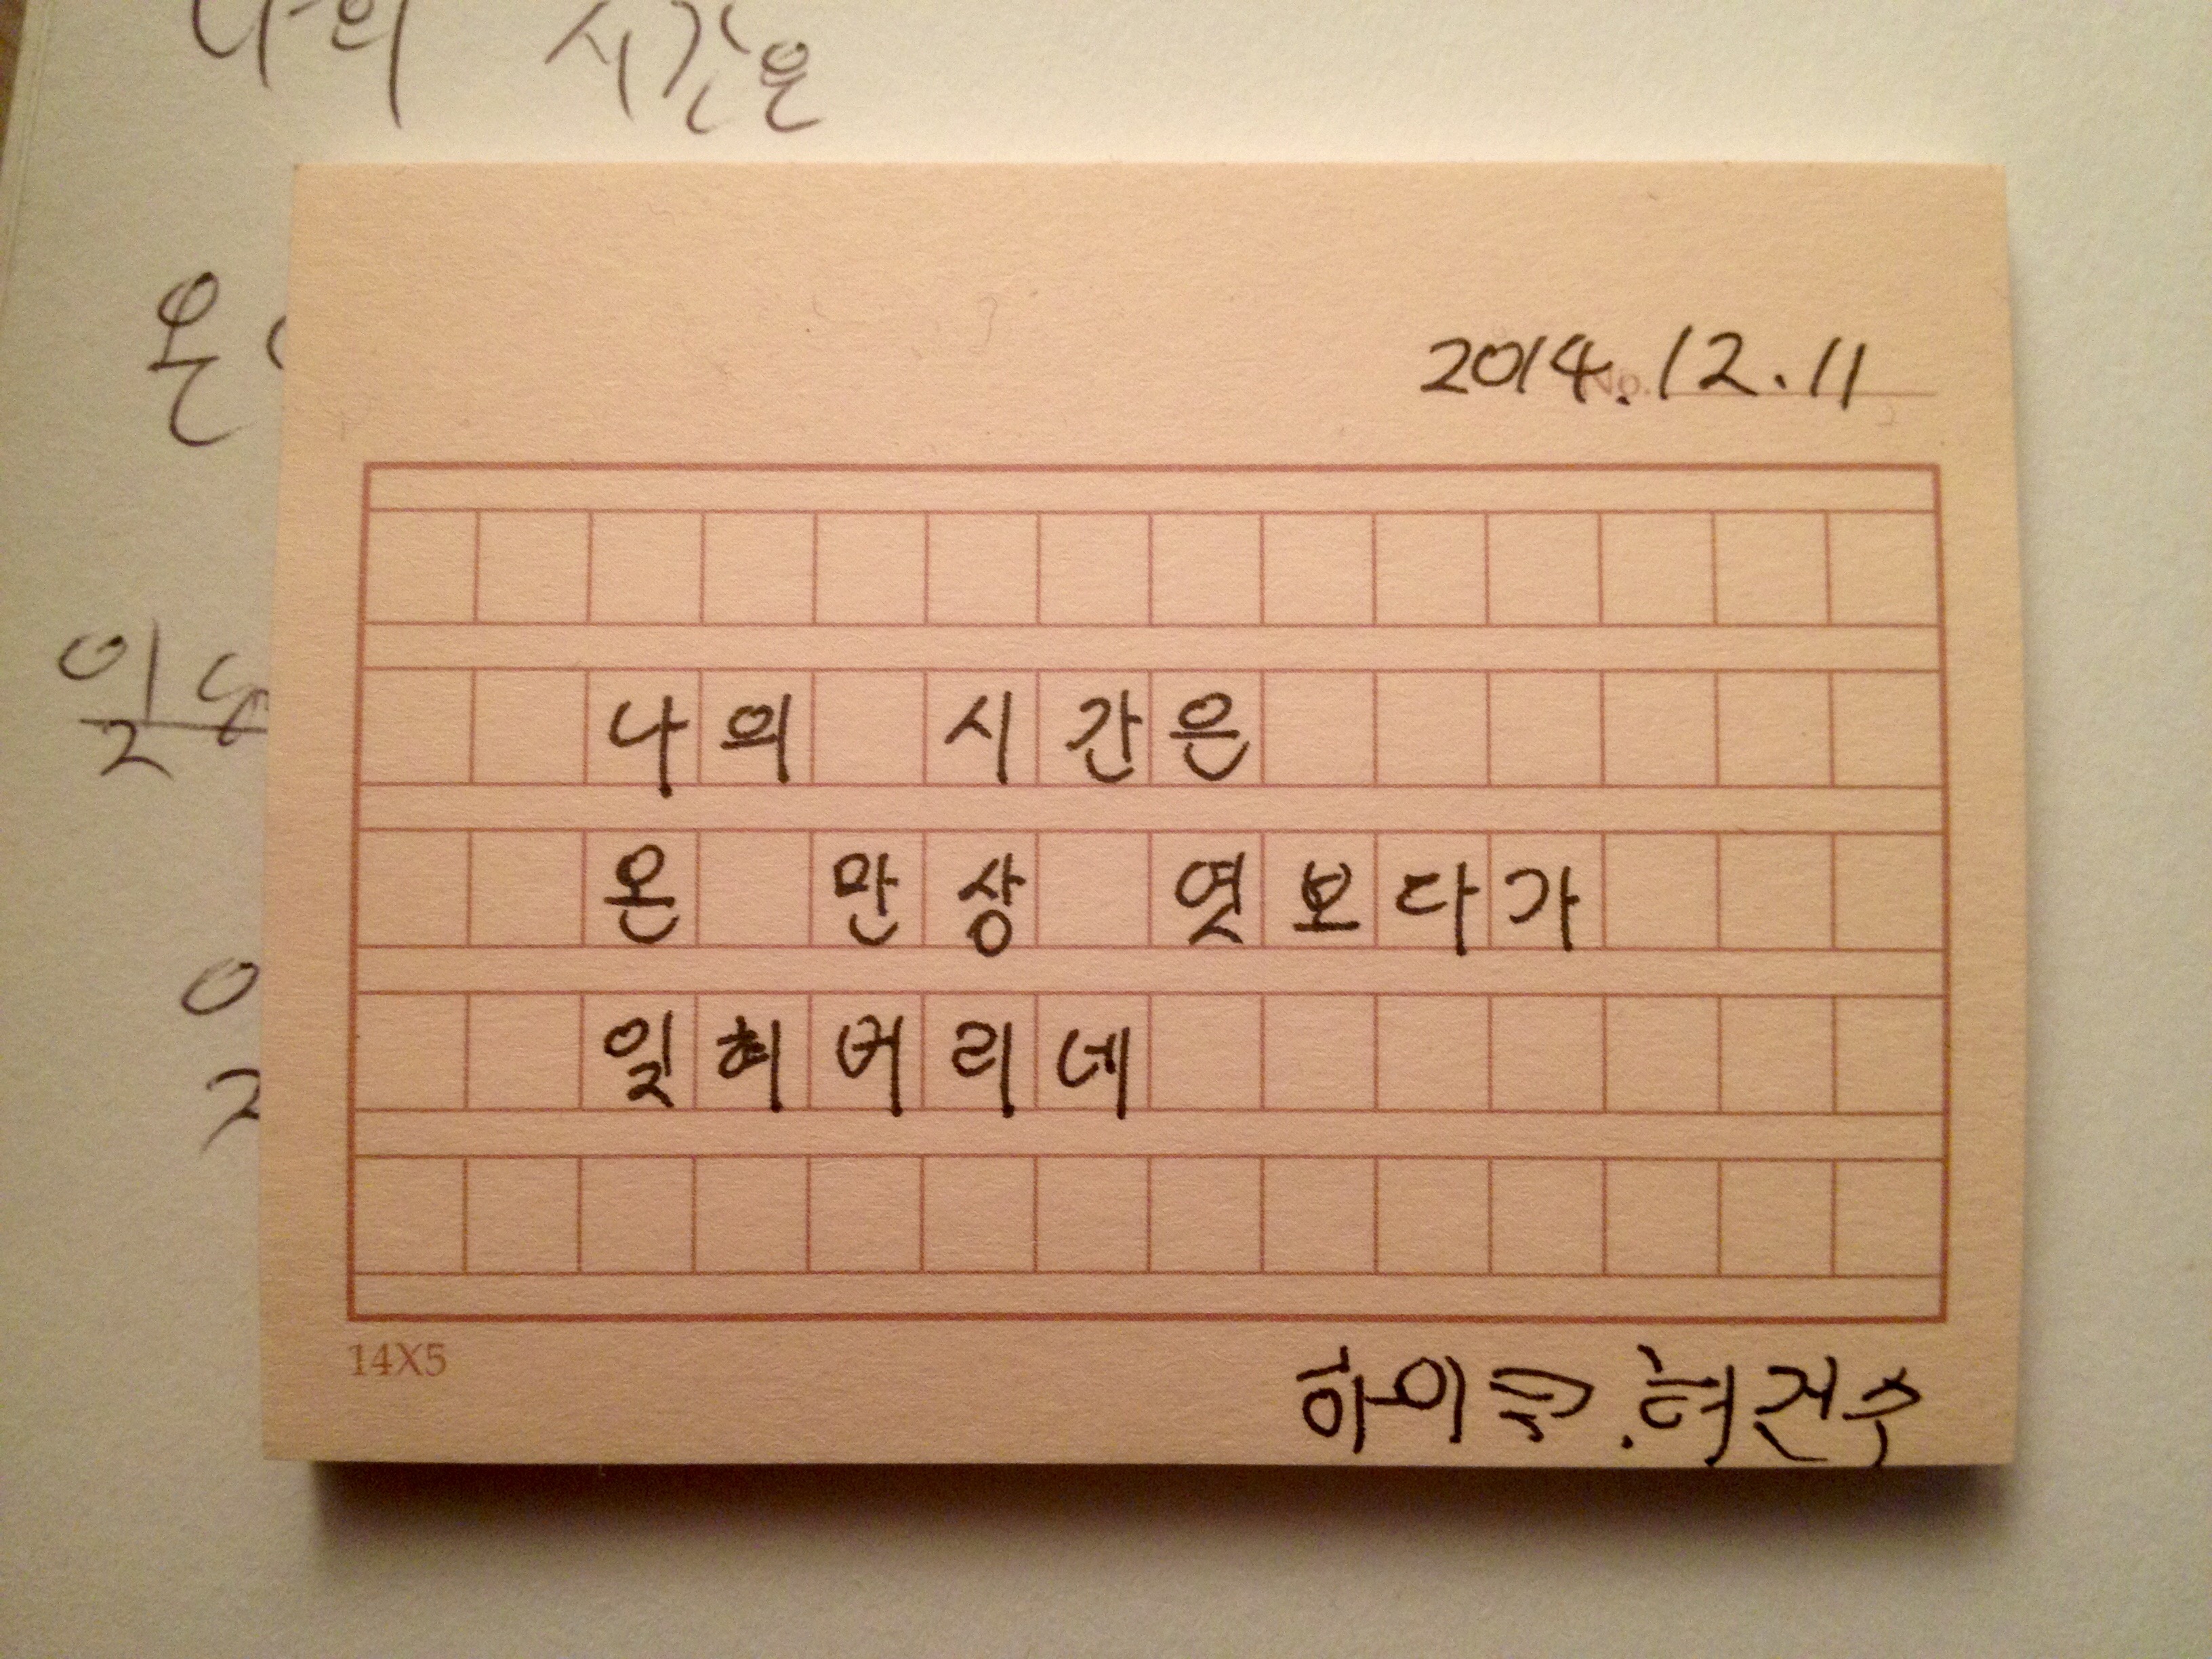 나의 시간은
온
2014.12.11
No.
나의 시간은
온 만상 엿보다가
잊혀버리네
14X5
하이쿠.허건수